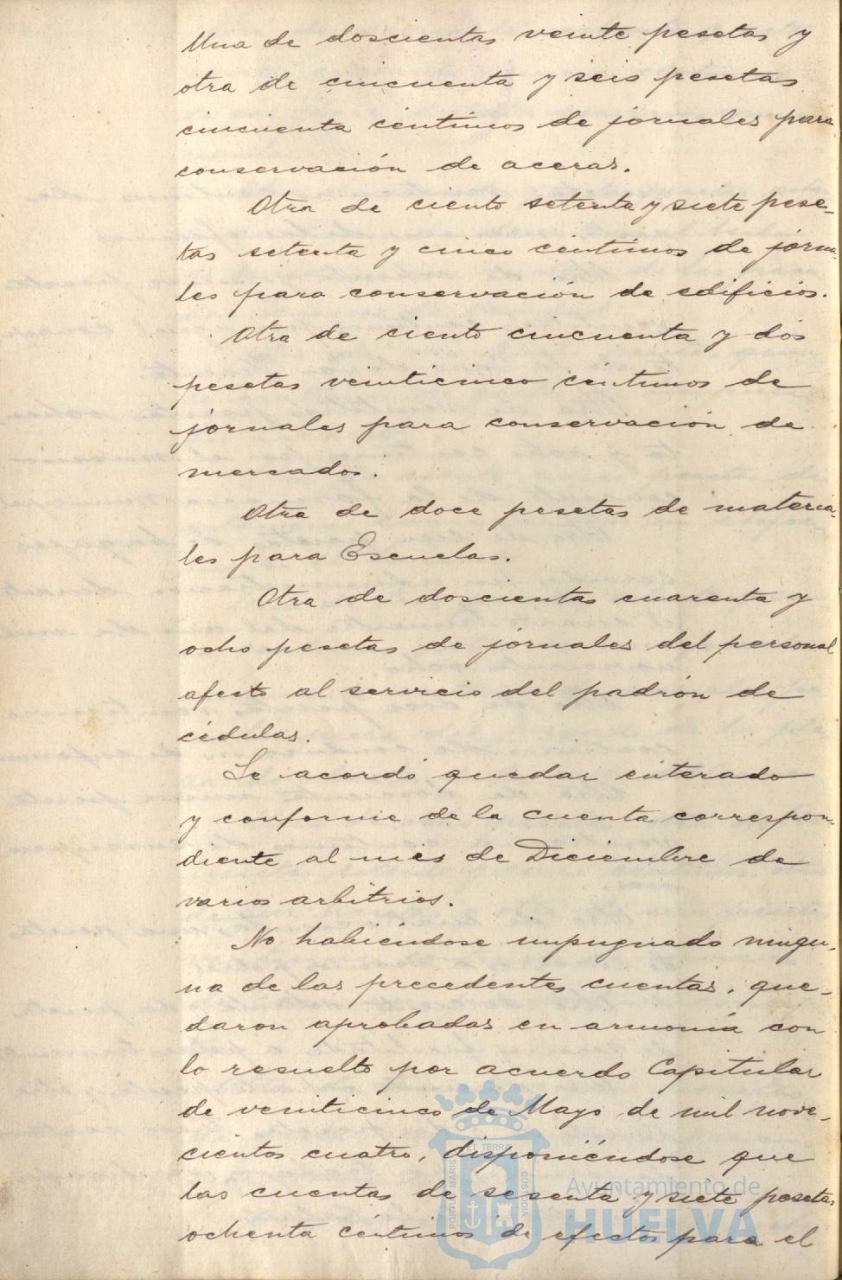 Una de doscientas veinte pesetas y
otra de cincuenta y seis pesetas
cincuenta céntimos de jornales para
conservación de aceras.
Otra de ciento setenta y siete pese-
tas setenta y cinco céntimos de jorna-
les para conservación de edificios.
Otra de ciento cincuenta y dos
pesetas veinticinco céntimos de
jornales para conservación de
mercados.
Otra de doce pesetas de materia-
les para Escuelas.
Otra de doscientas cuarenta y
ocho pesetas de jornales del personal
afecto al servicio del padrón de
cédulas.
Se acordó quedar enterado
y conforme de la cuenta correspon-
diente al mes de Diciembre de
varios arbitrios.
No habiéndose impugnado ningu-
na de las precedentes cuentas, que-
daron aprobadas en armonía con
lo resuelto por acuerdo Capitular
de veinticinco de Mayo de mil nove-
cientos cuatro, disponiéndose que
las cuentas de sesenta y siete pesetas
ochenta céntimos de efectos para el
Ayuntamiento de
HUELVA
PORTUS MARIS ET TERRAE CUSTODIA